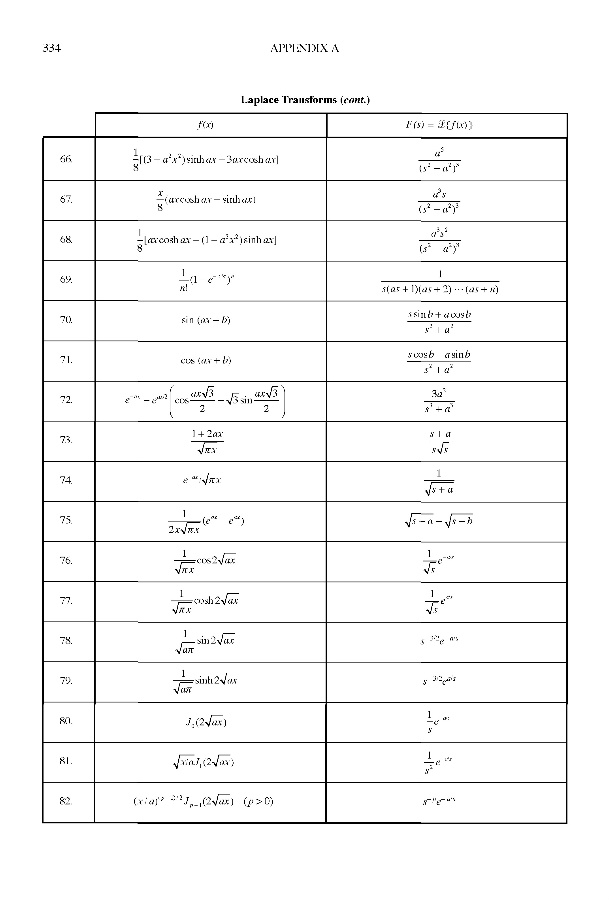 334 APPENDIX A
Laplace Transforms (cont.)
f(x) F(s) = ℒ{f(x)}
66. 1/8[(3 − a²x²)sinh ax − 3ax cosh ax] a⁵/(s² − a²)³
67. x/8(ax cosh ax − sinh ax) a³s/(s² − a²)³
68. 1/8[ax cosh ax − (1 − a²x²)sinh ax] a³s²/(s² − a²)³
69. 1/n!(1 − e^(−x/a))ⁿ 1/(s(as + 1)(as + 2) ··· (as + n))
70. sin (ax + b) (s sin b + a cos b)/(s² + a²)
71. cos (ax + b) (s cos b − a sin b)/(s² + a²)
72. e^(−ax) − e^(ax/2)(cos (ax√3)/2 − √3 sin (ax√3)/2) 3a²/(s³ + a³)
73. (1 + 2ax)/√(πx) (s + a)/(s√s)
74. e^(−ax)/√(πx) 1/√(s + a)
75. 1/(2x√(πx))(e^(bx) − e^(ax)) √(s − a) − √(s − b)
76. 1/√(πx) cos 2√(ax) 1/√s e^(−a/s)
77. 1/√(πx) cosh 2√(ax) 1/√s e^(a/s)
78. 1/√(aπ) sin 2√(ax) s^(−3/2)e^(−a/s)
79. 1/√(aπ) sinh 2√(ax) s^(−3/2)e^(a/s)
80. J₀(2√(ax)) 1/s e^(−a/s)
81. √(x/a)J₁(2√(ax)) 1/s² e^(−a/s)
82. (x/a)^((p−1)/2)J_(p−1)(2√(ax)) (p > 0) s^(−p)e^(−a/s)